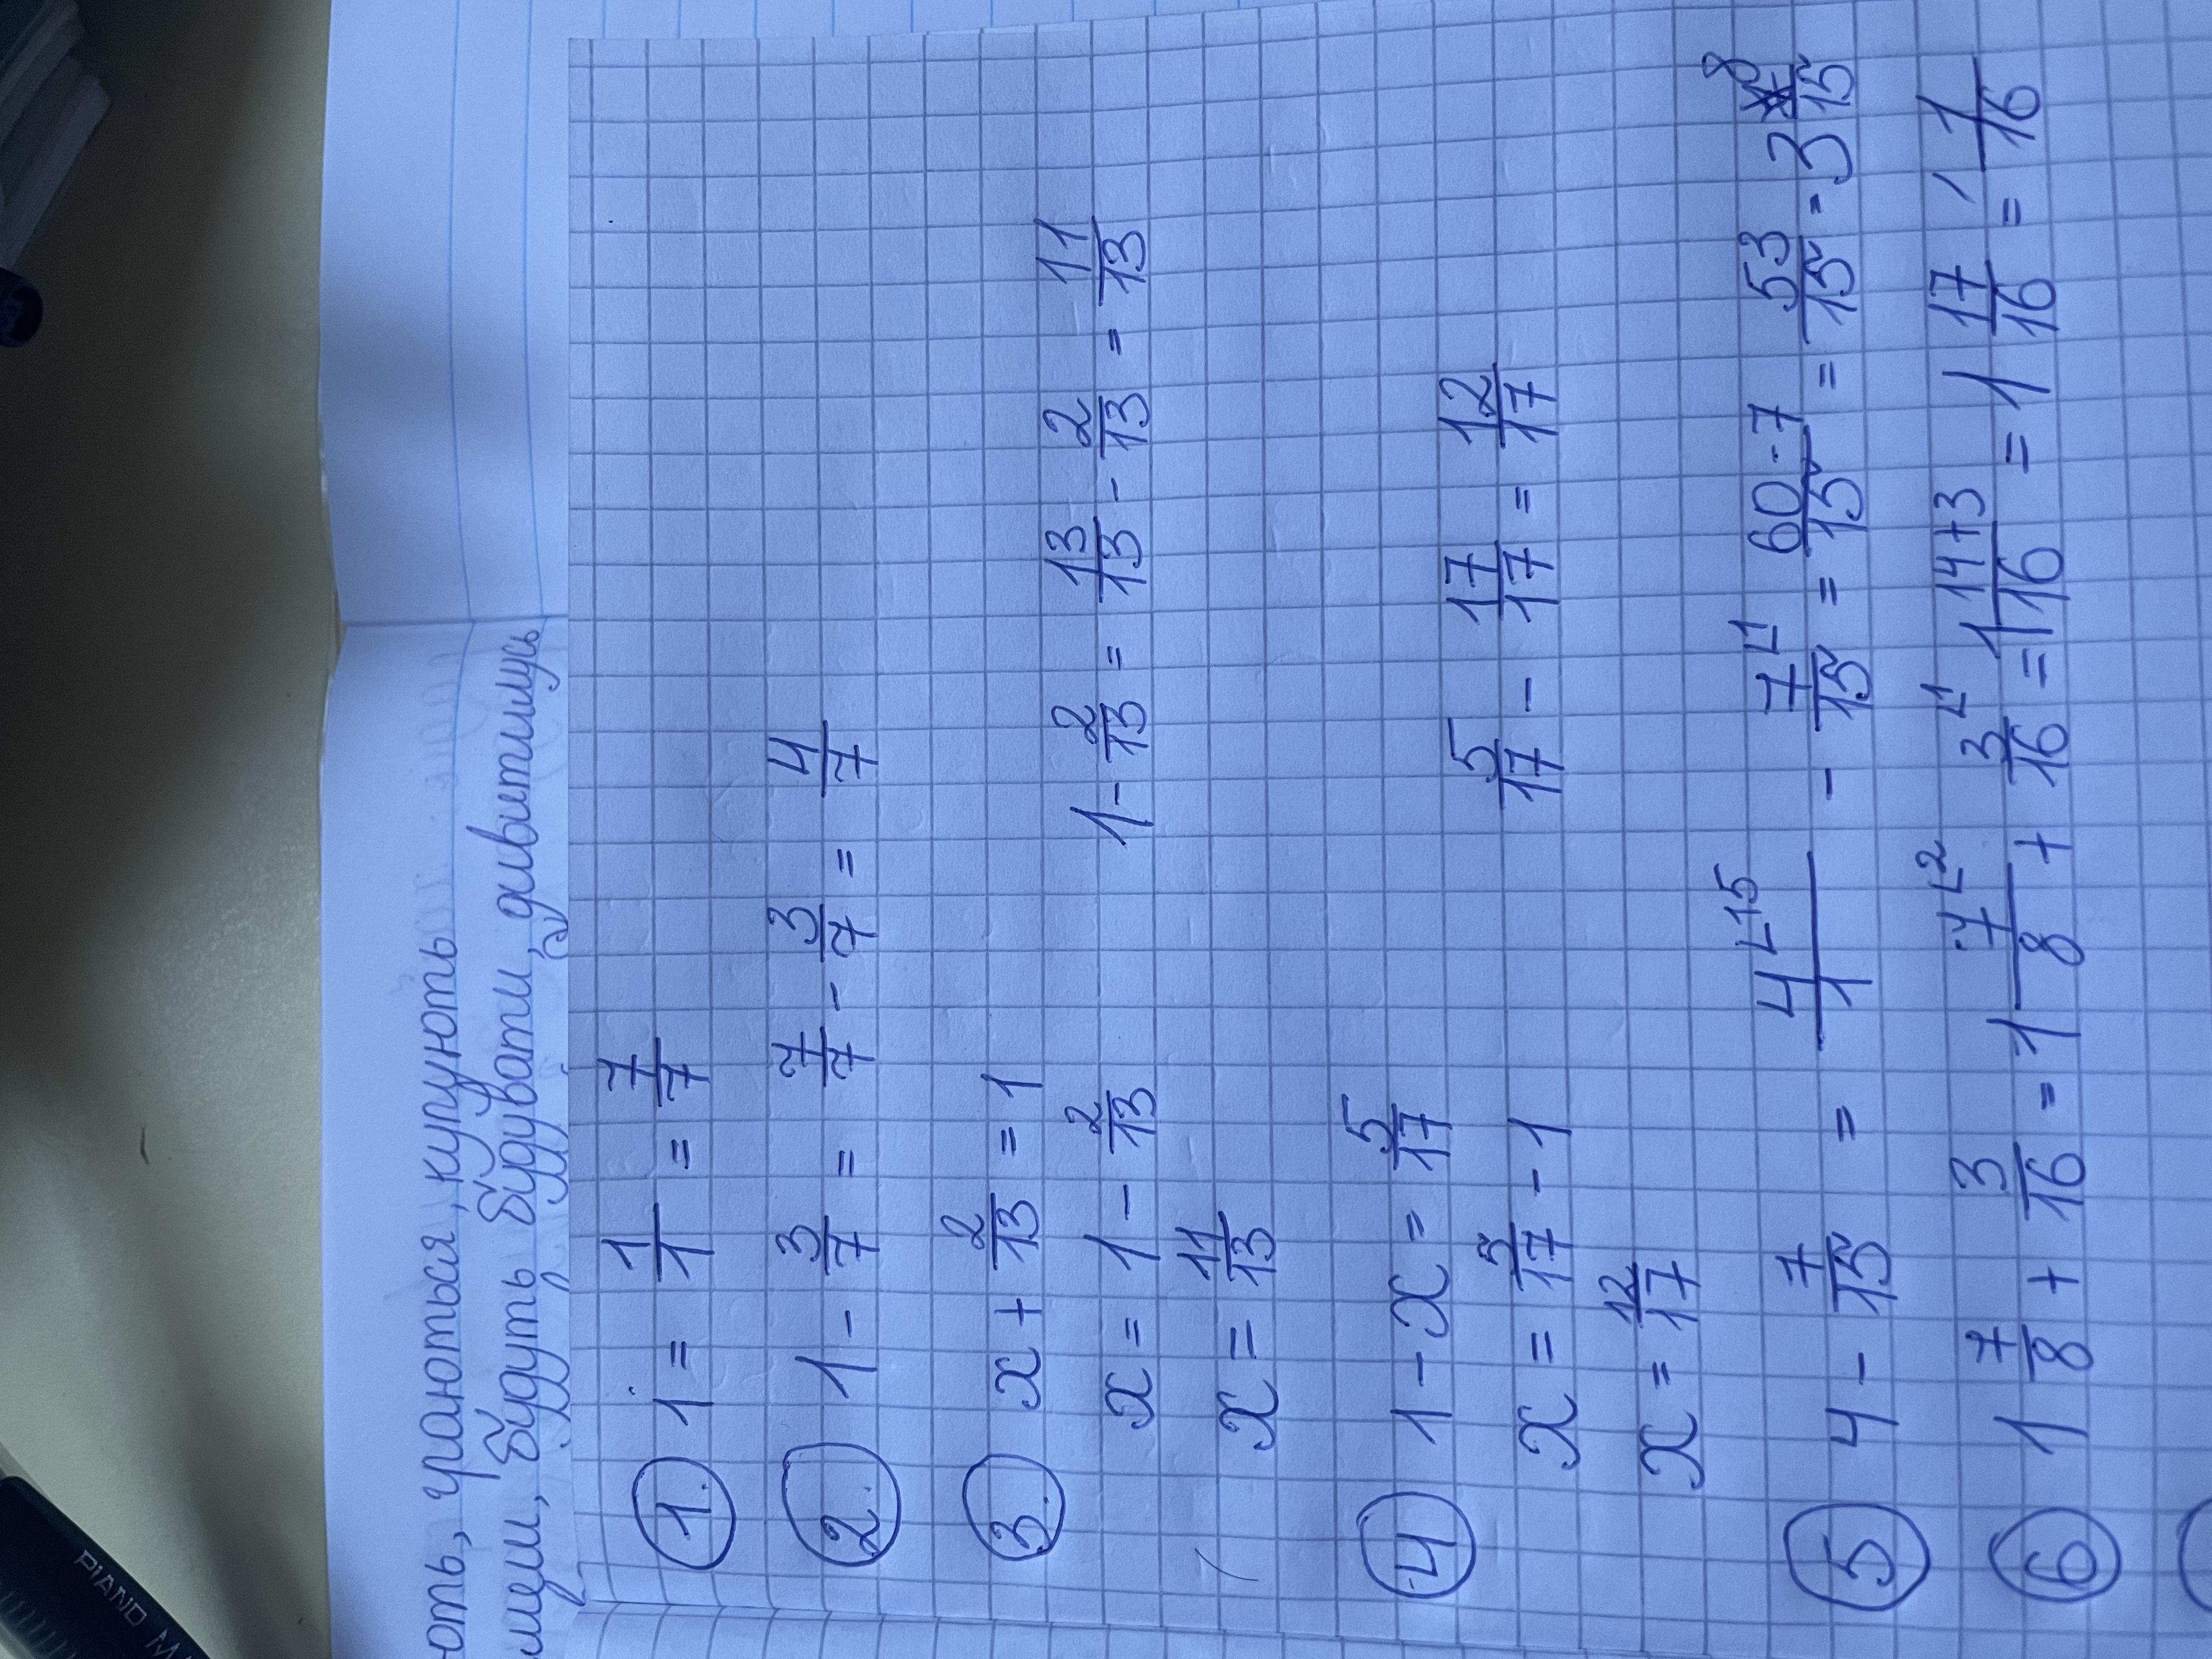 ють, граються, купують
мемі, будуть будувати, дивитимусь
PIANO
1. 1 = 1/1 = 7/7
2. 1 - 3/7 = 7/7 - 3/7 = 4/7
3. x + 2/13 = 1
x = 1 - 2/13 1 - 2/13 = 13/13 - 2/13 = 11/13
x = 11/13
4 1 - x = 5/17
x = 5/17 - 1 5/17 - 17/17 = 12/17
x = 12/17
5 4 - 7/15 = 4/1 ∟15 - 7/15 ∟1 = 60-7/15 = 53/15 = 3 8/15
6 1 7/8 + 3/16 = 1 7/8 ∟2 + 3/16 ∟1 = 1 14+3/16 = 1 17/16 = 1/16